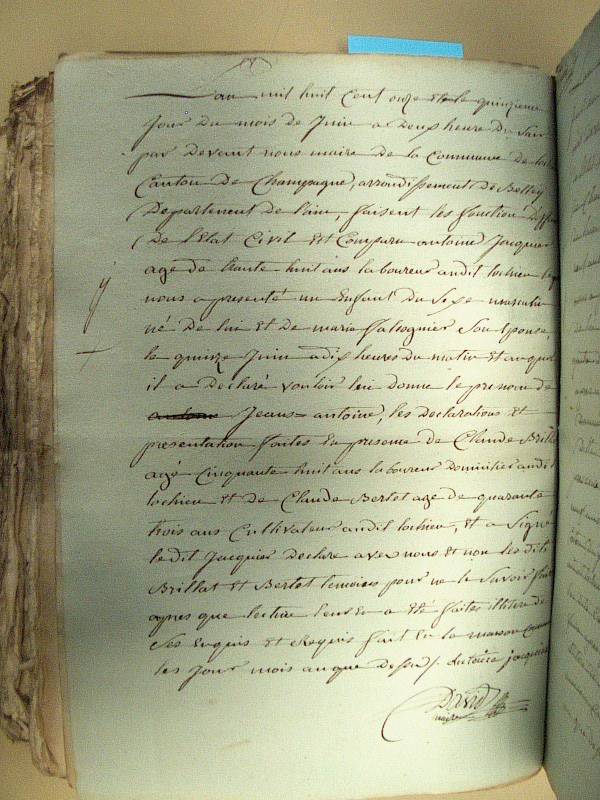 L'an mil huit Cent onze Et le quinzieme
Jour Du mois de Juin a Deux heure Du Soir
par Devant nous maire De la Commune De
Canton De Champagne, arrondissement De Belley
Departement De l'ain, faisent les fonction
De l'Etat Civil Est Comparu antoine Jacquier
agé de trante huit ans laboureur audit lochieu
nous a presenté un Enfant Du Sexe
né De lui Et De marie Son Epouse,
le quinze Juin a dix heures Du matin Et auquel
il a Declaré vouloir lui donne le prenom De
Jeans= antoine, les Declarations Et
presentation faites En presence De Claude Brillat
agé Cinquante huit ans laboureur Domicilier audit
lochieu Et De Claude Bertet age De quarante
trois ans Cultivateur audit lochieu, Et a Signé
le dit Jacquier Declare avec nous Et non les dits
Brillat Et Bertet temoins pour ne le Savoir fait
apres que lecture leur En a Eté faites
De Ses Enquis Et Requis fait En la maison
les Jour mois an que Dessus. antoine jacquier
David
maire